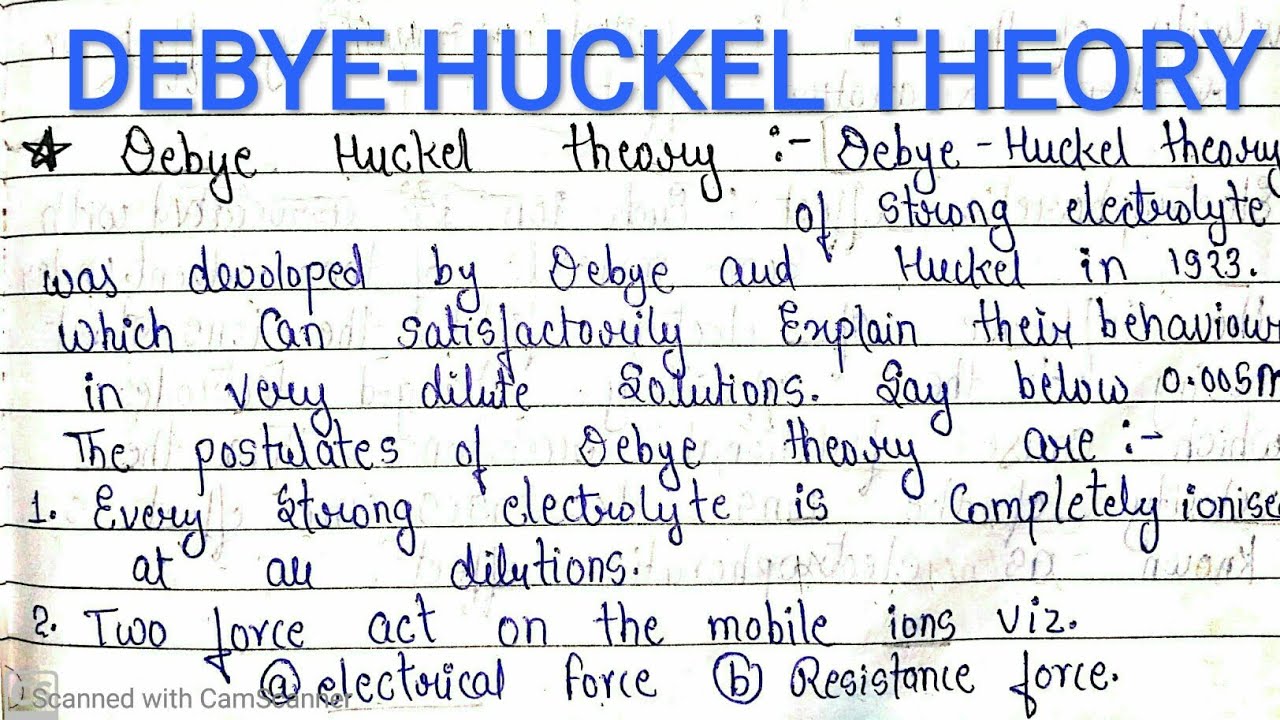 DEBYE-HUCKEL THEORY
Debye Huckel theory :- Debye-Huckel theory
of strong electrolyte
was devoloped by Debye and Huckel in 1923.
which Can satisfactorily Explain their behaviour
in very dilute Solutions. Say below 0.005M
The postulates of Debye theory are :-
1. Every Strong electrolyte is Completely ionise
at all dilutions.
2. Two force act on the mobile ions viz.
(a) electrical force (b) Resistance force.
Scanned with CamScanner